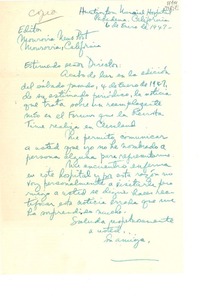 Copia
Huntington Memorial Hospital
Pasadena, California
6 de Enero de 1947-
Editor
Monrovia News Post
Monrovia, California
Estimado señor Director:
Acabo de ver en la edición
del sábado pasado, 4 de enero de 1947,
de su estimado periódico, la noticia
que trata sobre un reemplazante
mío en el Forum que la Revista
Time realiza en Cleveland
Me permito comunicar
a usted que yo no he nombrado a
persona alguna para representarme
Me encuentro enferma
en este hospital y por esta razón no
voy personalmente a visitarlo pero
ruego a usted se digne hacer rec-
tificar esta noticia errada que me
ha sorprendido mucho.
Saluda respetuosamente
a usted,
Su amiga.